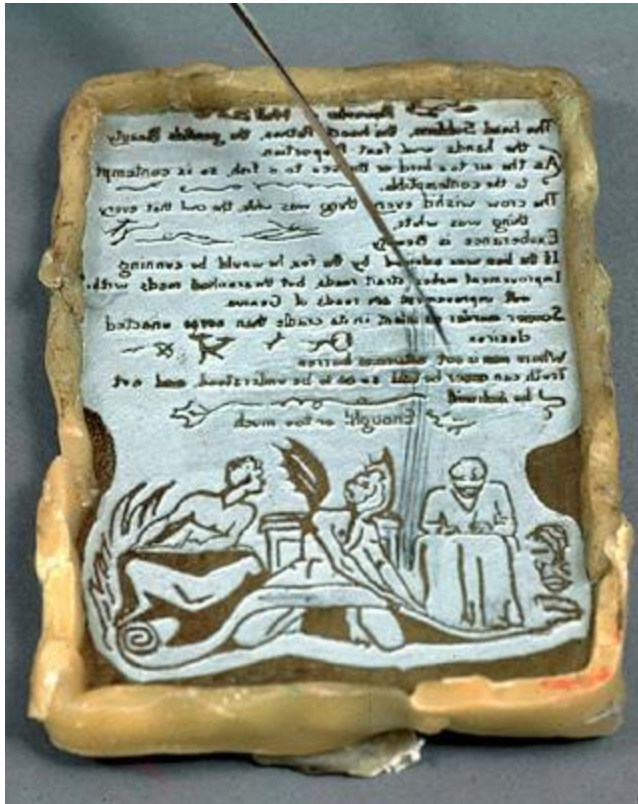 Proverbs Hell
The head Sublime, the heart Pathos, the genitals Beauty
the hands and feet Proportion
As the air to a bird or the sea to a fish, so is contempt
to the contemptible.
The crow wish'd every thing was the owl that every
thing was white.
Exuberance is Beauty
If the lion was advised by the fox, he would be cunning
Improvement makes strait roads, but roads with-
out improvement are roads of Genius
Sooner murder an infant in its cradle than nurse unacted
desires
Where man is not nature is barren
Truth can never be told so as to be understood and not
be believd
Enough! or too much